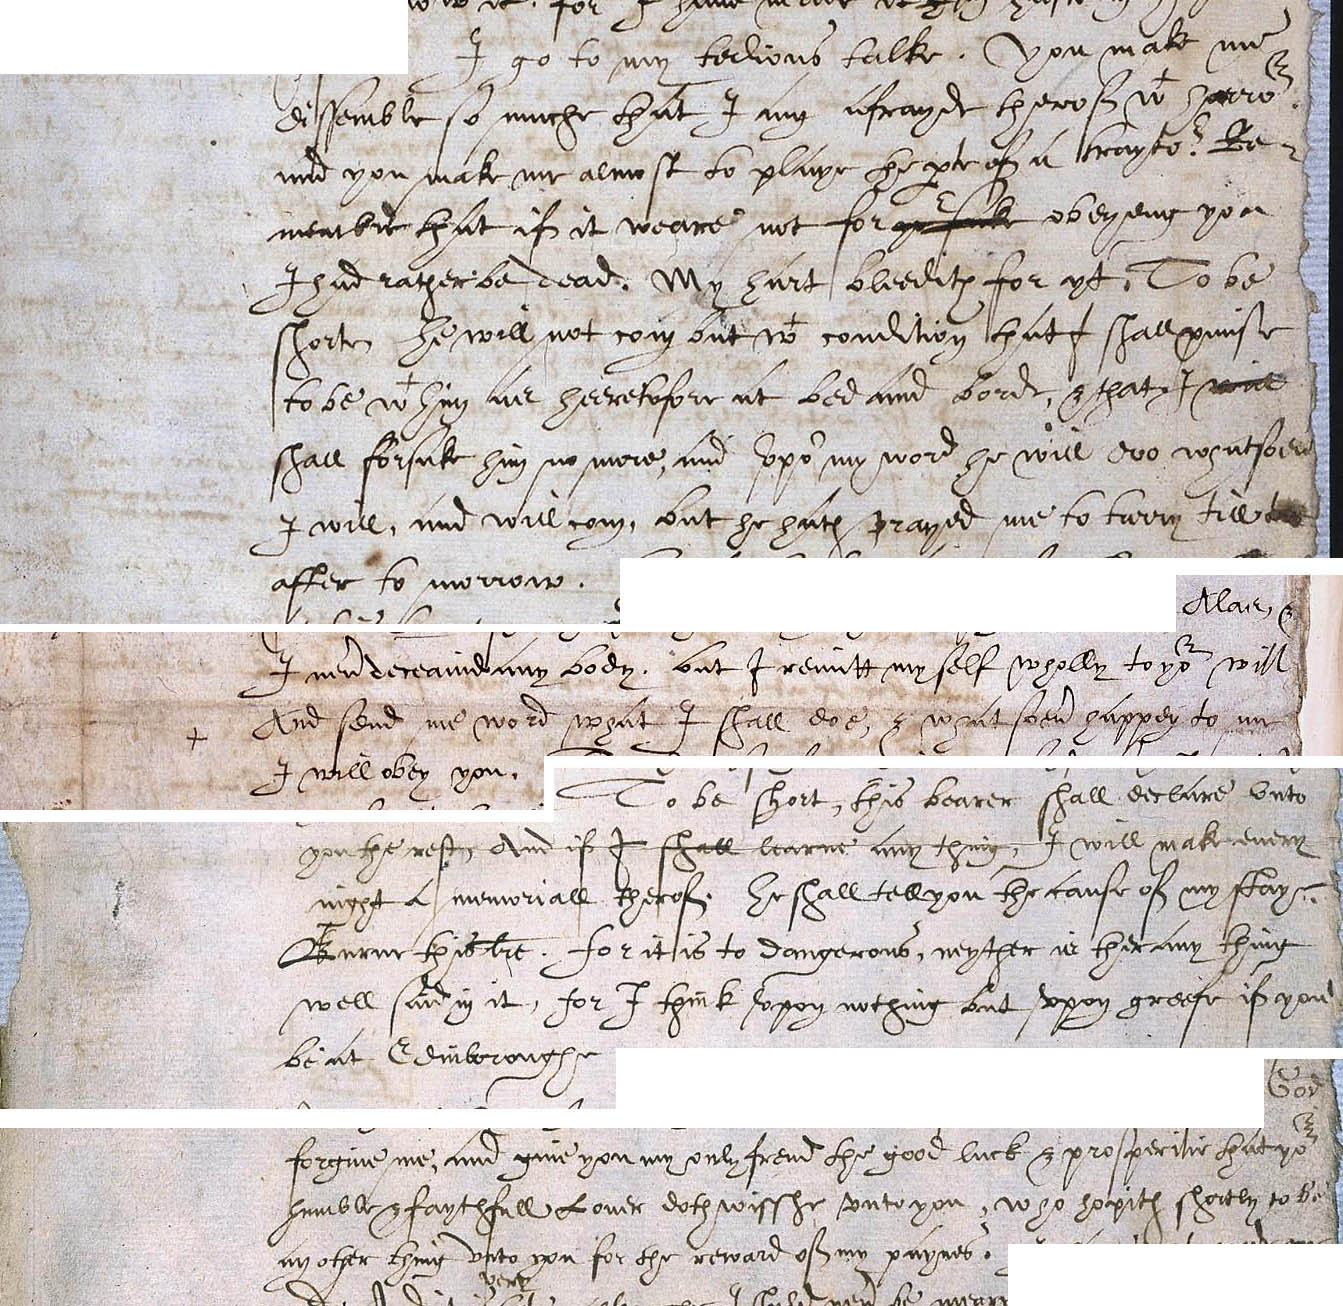 I go to my tedious talke. You make me
dissemble so muche that I am afrayde therof wt horro^r.
and you make me almost to playe the pte of a trayto^r. Re-
membre that if it weare not for obeyeng you
I had rather be dead. My hart bleedith for yt. To be
shorte he will not com but wt condition that I shall pmise
to be wt him as heeretofore at bed and borde, & that I will
shall forsake him no more, and vpō my word he will doo whatsoeuer
I will, and will com, but he hath prayed me to tarry till
after to morrow.
Alas, &
I neu~ deceaued any body. but I remitt my self wholly to yo^r will
+ And send me word what I shall doe, & whatsoeu~ happen to me
I will obey you.
To be short, this bearer shall declare vnto
you the rest, And if I shall learne any thing, I will make euery
night a memoriall therof. He shall tell you the cause of my staye.
Burne this lre. for it is to dangerous, neyther is ther any thing
well said in it, for I think vpon nothing but vpon greefe if you
be at Edinboroughe
God
forgiue me, and giue you my only frend the good luck & prosperitie that yo^r
humble & faythfull Louer doth wisshe vnto you, who hopith shortly to be
an other thing vnto you for the reward of my paynes.
very